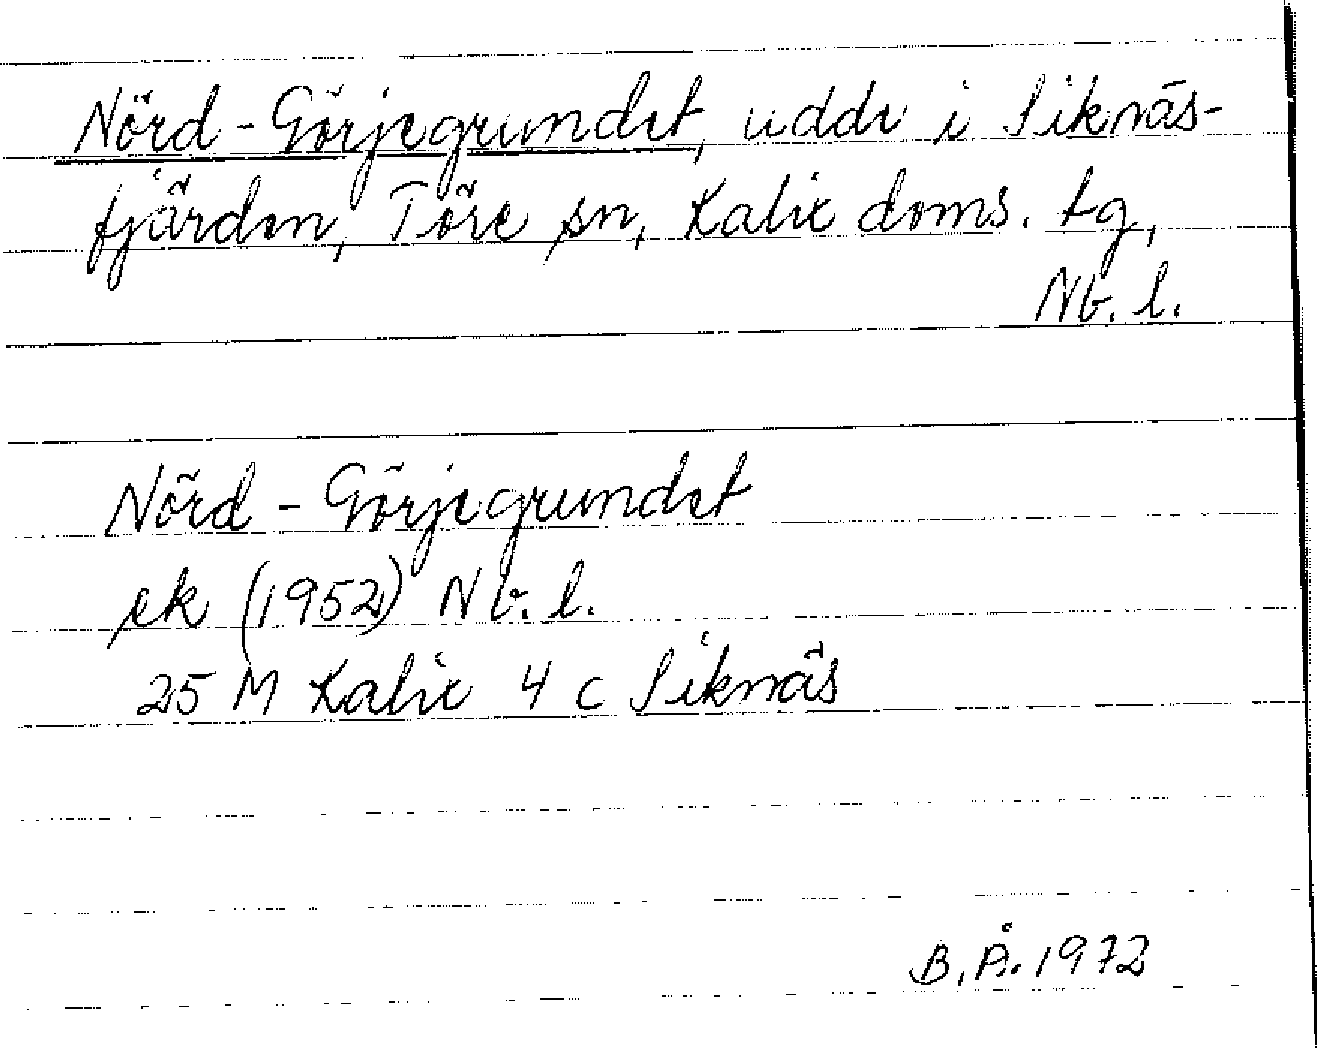 Nörd-Görjegrundet, udde i Siknäs-
fjärden, Töre sn, Kalix doms. tg,
Nb. l.
Nörd-Görjegrundet
ek (1952) Nb. l.
25 M Kalix 4 c Siknäs
B.Å. 1972